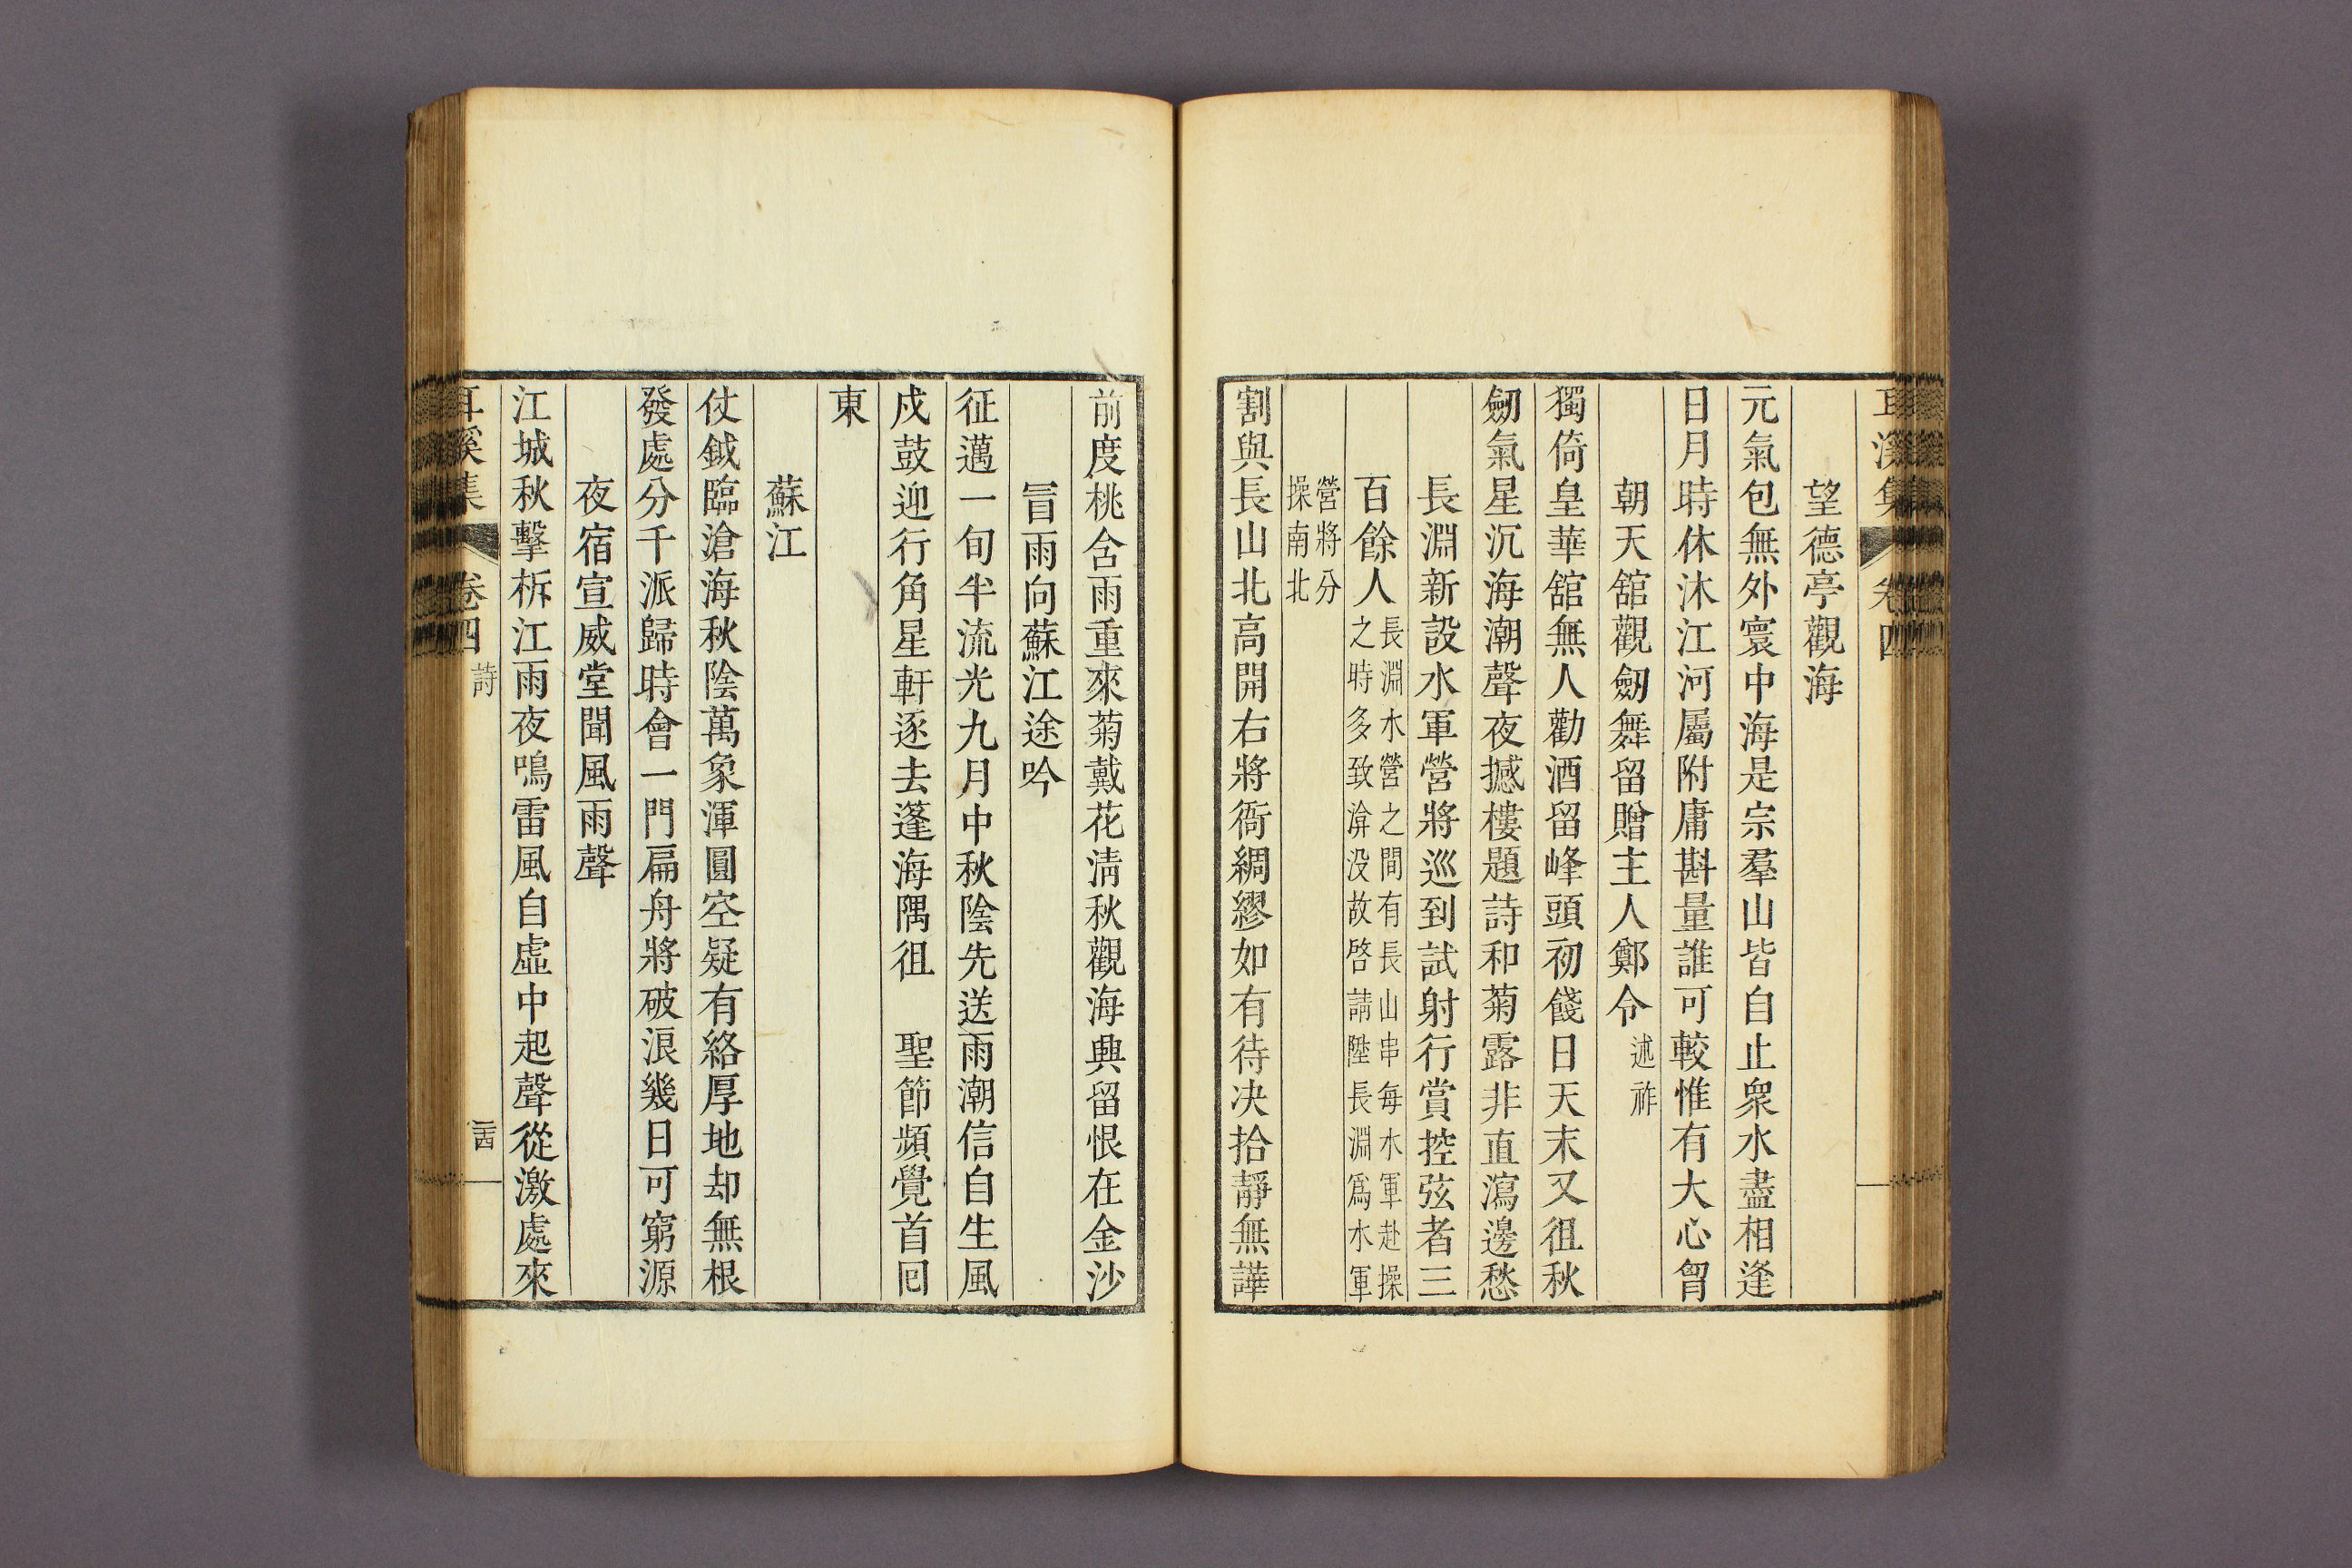 耳溪集 卷四
望德亭觀海
元氣包無外寰中海是宗羣山皆自止衆水盡相逢
日月時休沐江河屬附庸斟量誰可較惟有大心胷
朝天舘觀劒舞留贈主人鄭令述祚
獨倚皇華舘無人勸酒留峰頭初餞日天末又徂秋
劒氣星沉海潮聲夜撼樓題詩和菊露非直瀉邊愁
長淵新設水軍營將巡到試射行賞控弦者三
百餘人長淵水營之間有長山串每水軍赴操
之時多致渰没故啓請陞長淵爲水軍
營將分
操南北
割與長山北高開右將衙綢繆如有待决拾靜無譁
前度桃含雨重來菊戴花淸秋觀海興留恨在金沙
冒雨向蘇江途吟
征邁一旬半流光九月中秋陰先送雨潮信自生風
戍鼓迎行角星軒逐去蓬海隅徂 聖節頻覺首回
東
蘇江
仗鉞臨滄海秋陰萬象渾圓空疑有絡厚地却無根
發處分千派歸時會一門扁舟將破浪幾日可窮源
夜宿宣威堂聞風雨聲
江城秋擊柝江雨夜鳴雷風自虛中起聲從激處來
耳溪集 卷四 詩 二四